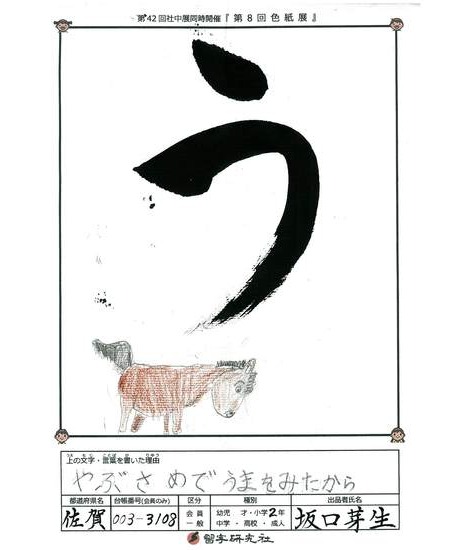 第42回社中展同時開催『第8回色紙展』
う
上の文字・言葉を書いた理由
やぶさめでうまをみたから
都道府県名 台帳番号(会員のみ) 区分 種別 出品者氏名
佐賀 003-3108 会員 一般 幼児 才・小学2年 中学・高校・成人 坂口芽生
書字研究社